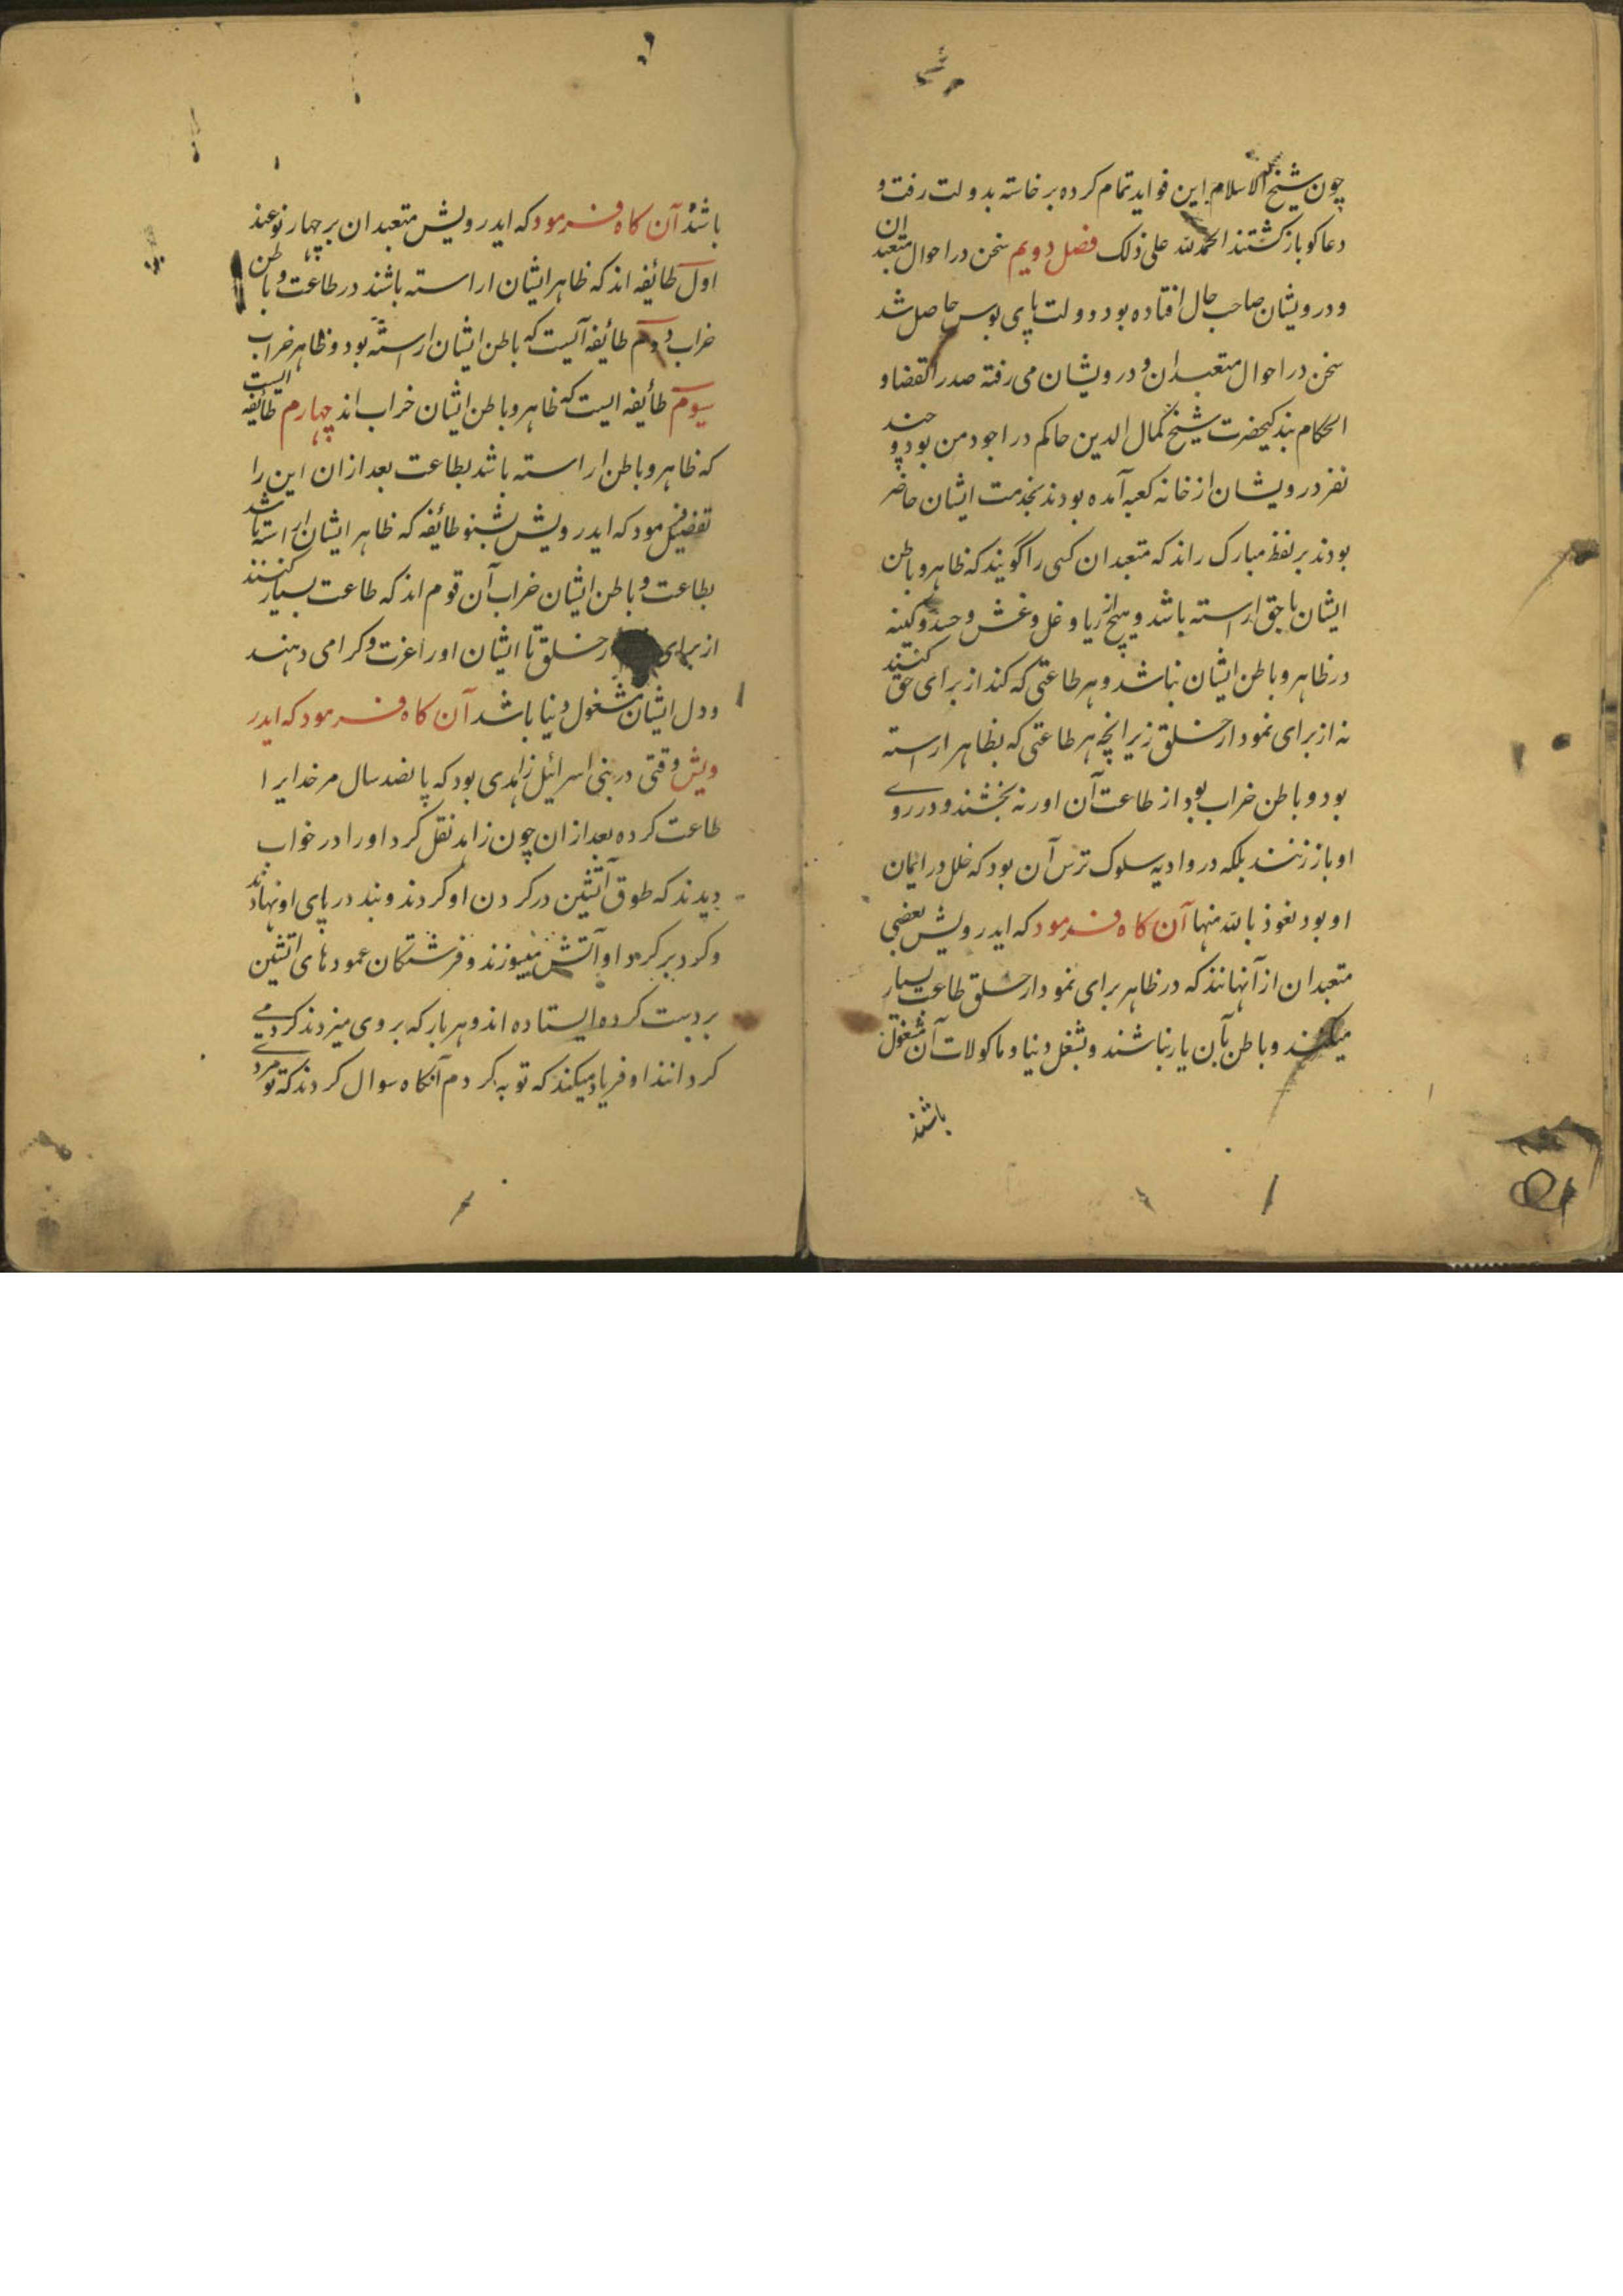 چون شیخ الاسلام این فواید تمام کرده برخاسته بدولت رفت و
دعا کو باز کشتند الحمد لله علی ذلک فصل دویم سخن در احوال متعبدان
و درویشان صاحب حال افتاده بود دولت پای بوس حاصل شد
سخن در احوال متعبدان و درویشان می رفته صدر القضاء و
الحکام بندکیحضرت شیخ کمال الدین حاکم در اجودمن بود و چند
نفر درویشان از خانه کعبه آمده بودند بخدمت ایشان حاضر
بودند بر لفظ مبارک راند که متعبدان کسی را گویند که ظاهر و باطن
ایشان با حق اراسته باشد و هیچ از ریا و غل و غش و حسد و کینه
در ظاهر و باطن ایشان نباشد و هر طاعتی که کنند از برای حق کنند
نه از برای نمودار خلق زیرانچه هر طاعتی که بظاهر اراسته
بود و باطن خراب بود از طاعت آن اور نه بخشند و در روے
او باز زنند بلکه در وادیه سلوک ترس آن بود که خلل در ایمان
او بود نعوذ بالله منها آن کاه فرمود که ایدرویش بعضی
متعبدان از آنهانند که در ظاهر برای نمودار خلق طاعت بسیار
میکنند و باطن بآن یار نباشند و بشغل دنیا و ماکولات آن مشغول
باشند
باشند آن کاه فرمود که ایدرویش متعبدان بر چهار نوعند
اول طائفه اند که ظاهر ایشان اراسته باشند در طاعت و باطن
خراب دوم طائفه آنیست که باطن ایشان اراسته بود و ظاهر خراب
سیوم طائفه ایست که ظاهر و باطن ایشان خراب اند چهارم طائفه ایست
که ظاهر و باطن اراسته باشد بطاعت بعد ازان این را
تفضیل فرمود که ایدرویش بشنو طائفه که ظاهر ایشان اراسته باشد
بطاعت و باطن ایشان خراب آن قوم اند که طاعت بسیار کنند
از برای خلق تا ایشان اورا عزت و کرامی دهند
و دل ایشان مشغول دنیا باشد آن کاه فرمود که ایدر
ویش وقتی در بنی اسرائیل زاهدی بود که پانصد سال مر خدایرا
طاعت کرده بعد ازان چون زاهد نقل کرد اورا در خواب
دیدند که طوق آتشین در کردن او کردند و بند در پای او نهادند
و کرد بر کرد او آتش میسوزند و فرشتکان عمودهای اتشین
بر دست کرده ایستاده اند و هر بار که بر وی میزدند کردمی
کردانند او فریاد میکند که توبه کردم آنکاه سوال کردند که تو مردے